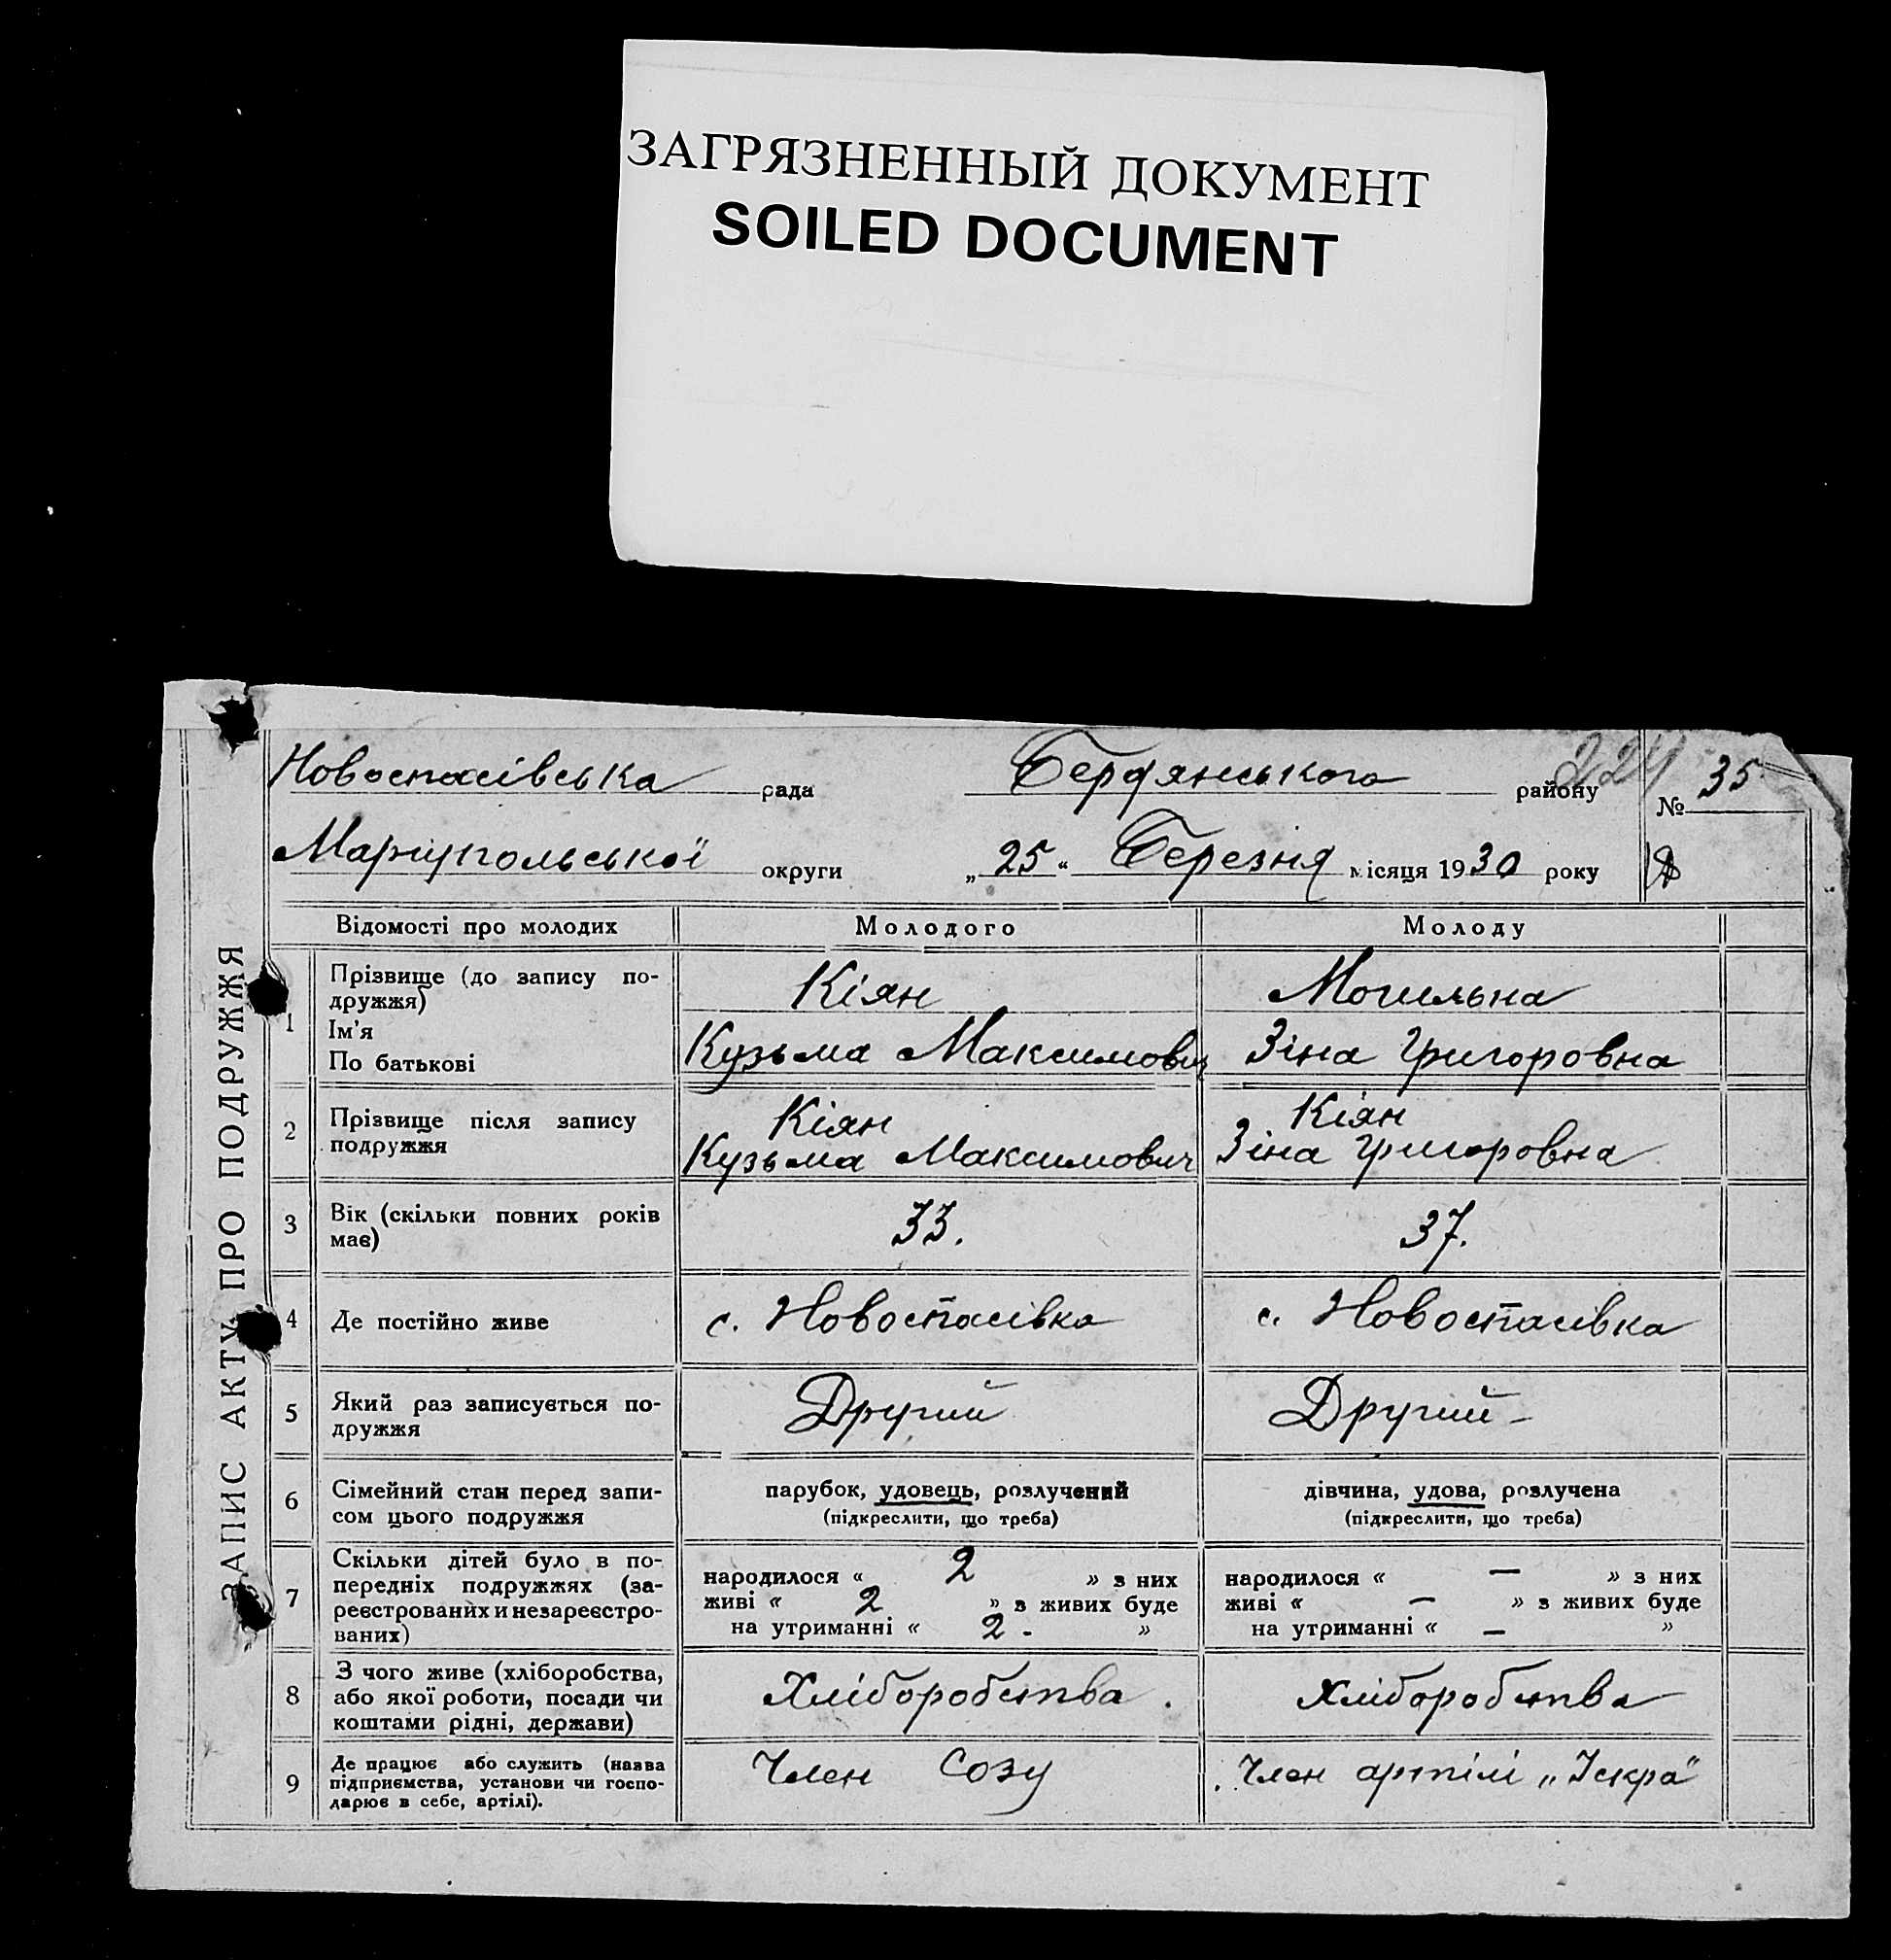 ЗАГРЯЗНЕННЫЙ ДОКУМЕНТ
SOILED DOCUMENT
ЗАПИС АКТУ ПРО ПОДРУЖЖЯ
Новоспасівська рада Бердянського району 224 № 35
Маріупольської округи „25“ Березня місяця 1930 року
Відомості про молодих Молодого Молоду
1 Прізвище (до запису по-
дружжя) Кіян Могильна
Ім'я
По батькові Кузьма Максимович Зіна Григоровна
2 Прізвище після запису
подружжя Кіян Кузьма Максимович Кіян Зіна Григоровна
3 Вік (скільки повних років
має) 33. 37.
4 Де постійно живе с. Новоспасівка с. Новоспасівка
5 Який раз записується по-
дружжя Другий Другий -
6 Сімейний стан перед запи-
сом цього подружжя
парубок, удовець, розлучений
(підкреслити, що треба)
дівчина, удова, розлучена
(підкреслити, що треба)
7 Скільки дітей було в по-
передніх подружжях (за-
реєстрованих и незареєстро-
ваних)
народилося « 2 » з них
живі « 2 » з живих буде
на утриманні « 2 - »
народилося « — » з них
живі « — » з живих буде
на утриманні « — »
8 З чого живе (хліборобства,
або якої роботи, посади чи
коштами рідні, держави) Хліборобства. Хліборобства
9 Де працює або служить (назва
підприємства, установи чи госпо-
дарює в себе, артілі). Член Созу Член артілі „Іскра"